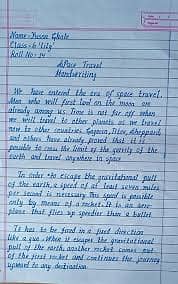 Name - Jwona Ghale
Class - 6 'Lily'
Roll No - 14
Space Travel
Handwriting
We have entered the era of space travel.
Men who will first land on the moon are
already among us. Time is not far off when
we will travel to other planets as we travel
now to other countries. Gagarin, Titov, Sheppard,
and others have already proved that it is
possible to cross the limit of the gravity of the
earth and travel anywhere in space.
In order to escape the gravitational pull
of the earth, a speed of at least seven miles
per second is necessary. This speed is possible
only by means of a rocket. It is an aero-
plane that flies up speedier than a bullet.
It has to be fired in a fixed direction
like a gun. When it escapes the gravitational
pull of the earth, another rocket comes out
of the first rocket and continues the journey
upward to any destination.